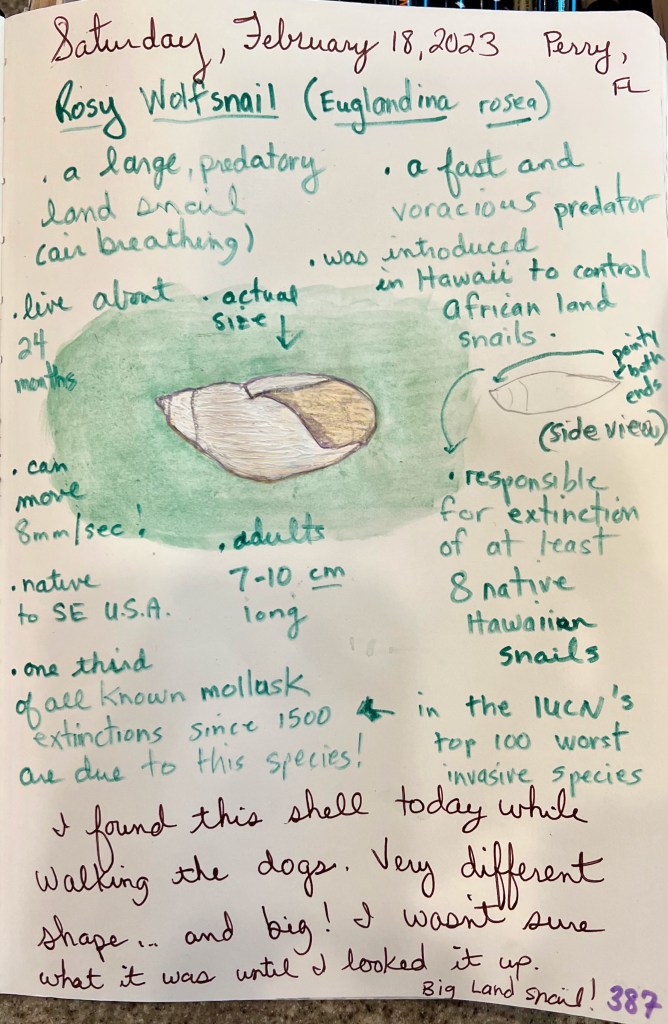 Saturday, February 18, 2023 Perry,
FL
Rosy Wolfsnail (Euglandina rosea)
• a large, predatory
land snail
(air breathing)
• a fast and
voracious predator
• was introduced
in Hawaii to control
African land
snails.
• live about
24
months
• actual
size
pointy
both
ends
(side view)
• can
move
8mm/sec!
• adults
7-10 cm
long
• responsible
for extinction
of at least
8 native
Hawaiian
snails
• native
to SE U.S.A.
• one third
of all known mollusk
extinctions since 1500
are due to this species!
in the IUCN's
top 100 worst
invasive species
I found this shell today while
walking the dogs. Very different
shape... and big! I wasn't sure
what it was until I looked it up.
Big Land Snail! 387